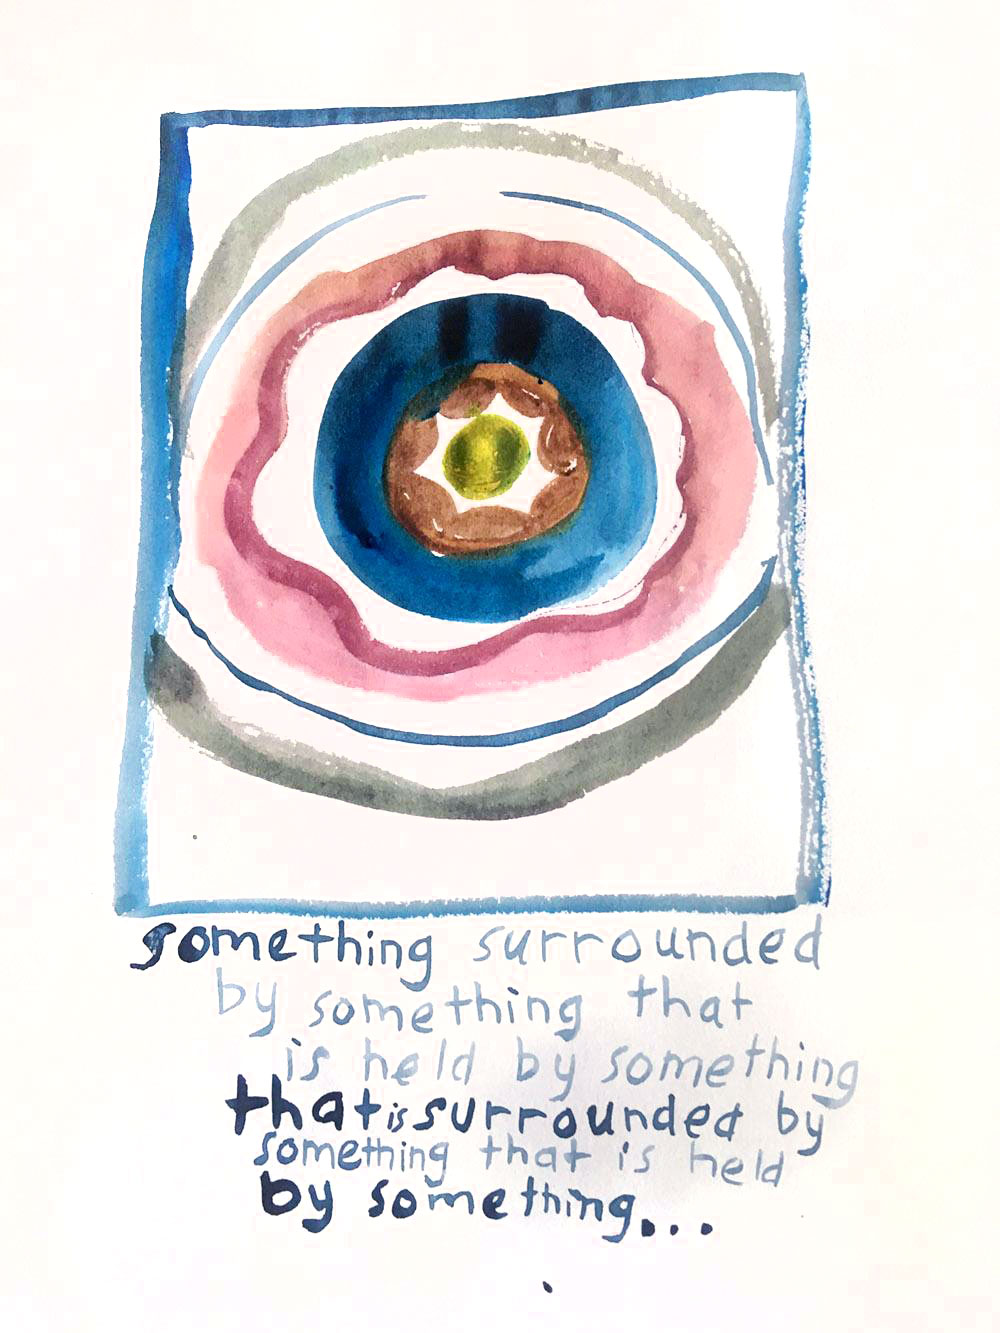 something surrounded
by something that
is held by something
that is surrounded by
something that is held
by something...